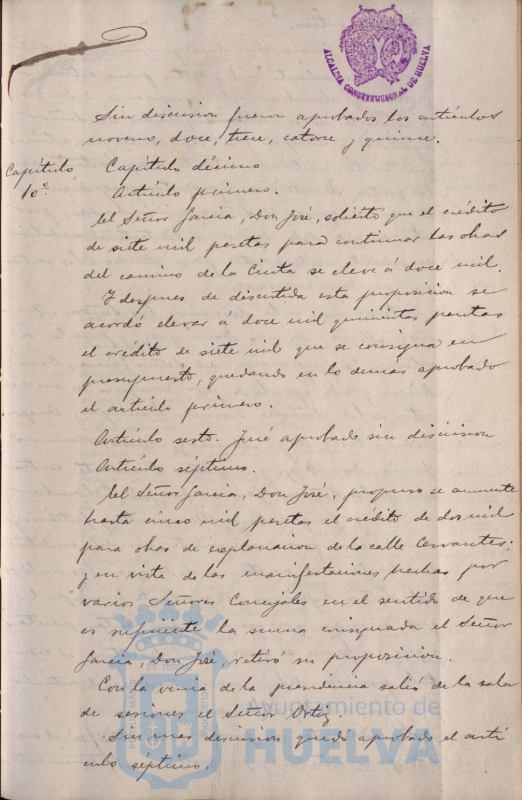 ALCALDIA CONSTITUCIONAL DE HUELVA
Sin discusion fueron aprobados los artículos
noveno, doce, trece, catorce y quince.
Capítulo
10º
Capítulo décimo
Artículo primero.
El Señor García, Don José, solicitó que el crédito
de siete mil pesetas para continuar las obras
del camino de la Cinta se eleve á doce mil.
Y despues de discutida esta proposicion se
acordó elevar á doce mil quinientas pesetas
el crédito de siete mil que se consigna en
presupuesto, quedando en lo demas aprobado
el artículo primero.
Artículo sesto. Fué aprobado sin discusion
Artículo séptimo.
El Señor Garcia, Don José, propuso se aumente
hasta cinco mil pesetas el crédito de dos mil
para obras de explanacion de la calle Cervantes;
y en vista de las manifestaciones hechas por
varios Señores Concejales en el sentido de que
es suficiente la suma consignada el Señor
Garcia, Don José, retiró su proposicion.
Con la venia de la presidencia salió de la sala
de sesiones el Señor Ortiz.
Sin mas discusion quedó aprobado el artí
culo septimo.
Ayuntamiento de
HUELVA